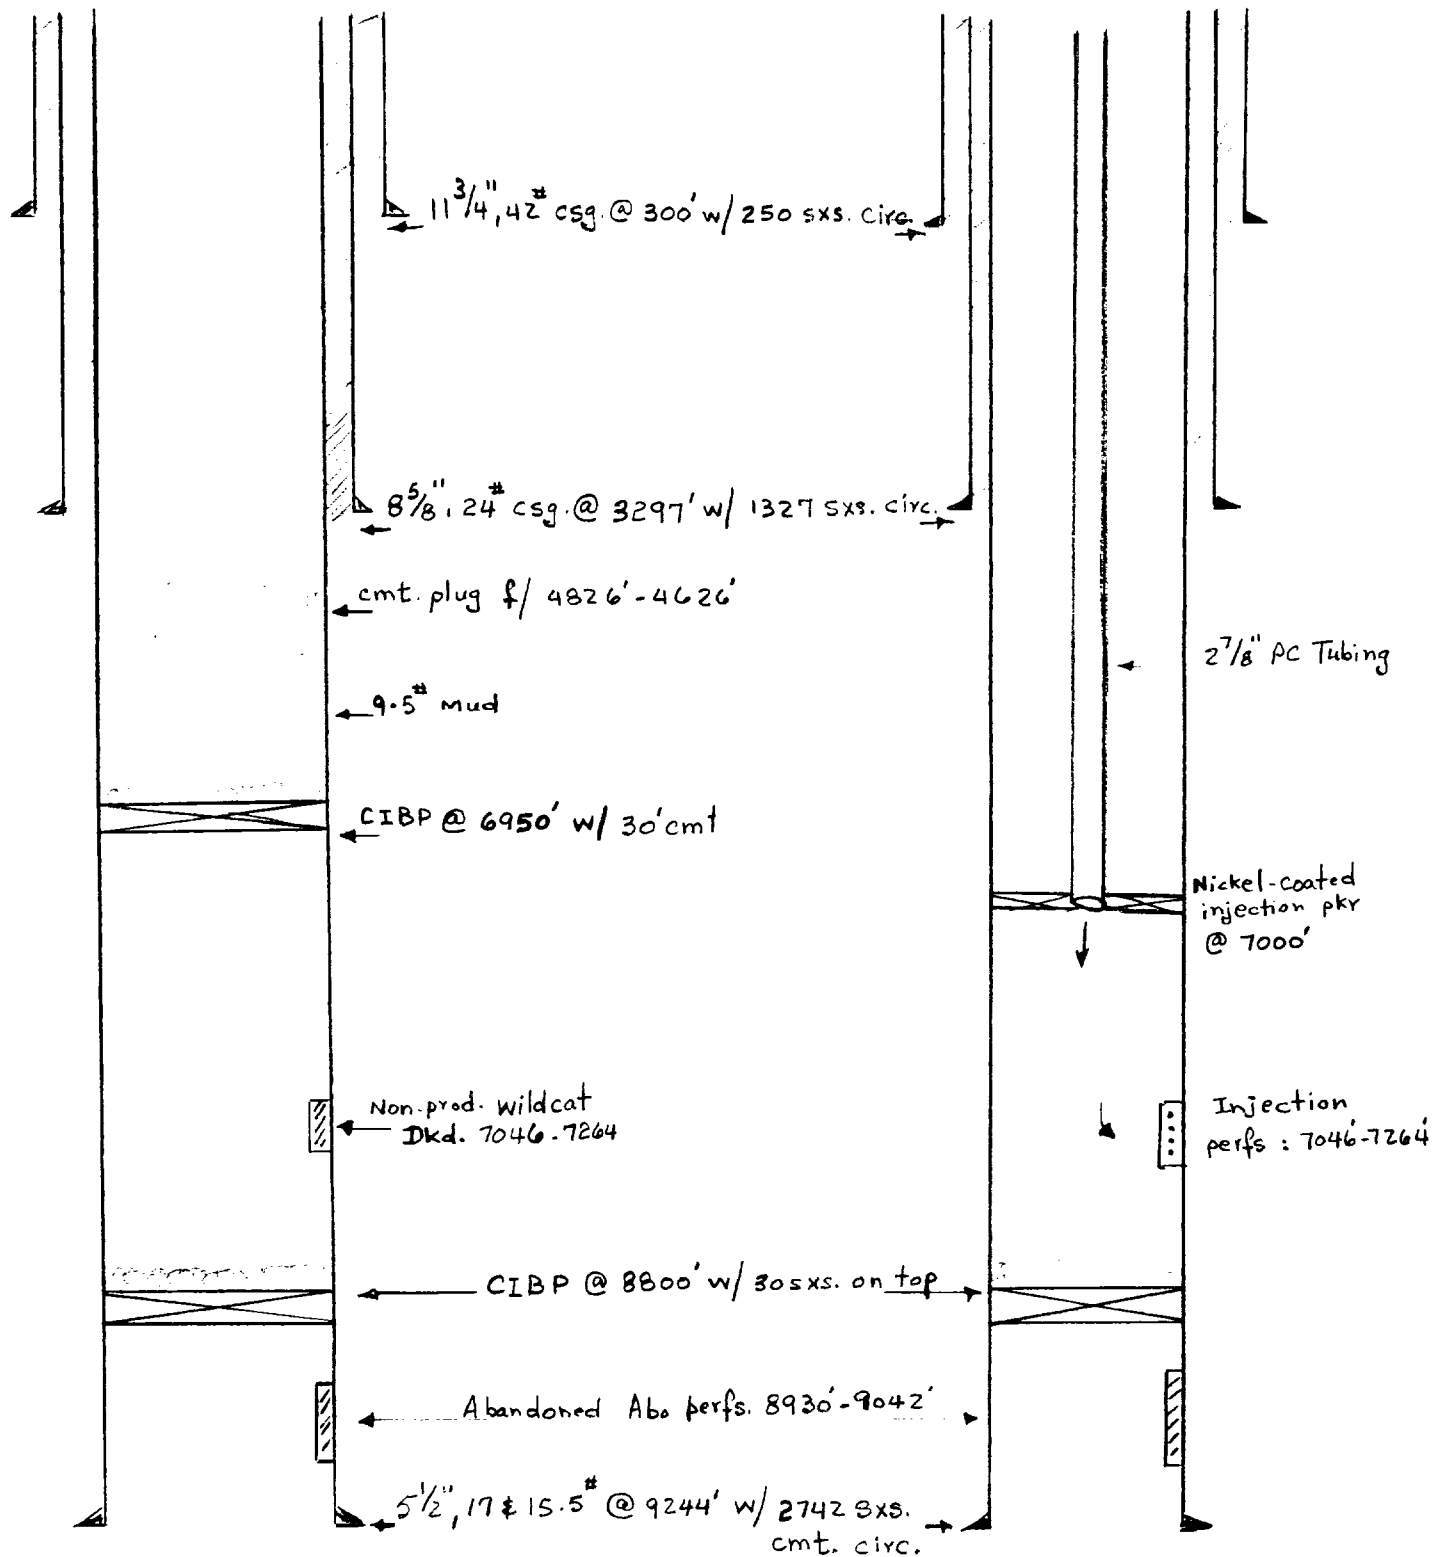 11 3/4", 42# csg. @ 300' w/ 250 sxs. Circ.
8 5/8", 24# csg. @ 3297' w/ 1327 sxs. circ.
cmt. plug f/ 4826'-4626'
2 7/8" PC Tubing
9.5# Mud
CIBP @ 6950' w/ 30' cmt
Nickel-coated
injection pkr
@ 7000'
Non-prod. wildcat
Dkd. 7046-7264
Injection
perfs : 7046'-7264'
CIBP @ 8800' w/ 30 sxs. on top
Abandoned Abo perfs. 8930'-9042'
5 1/2", 17 & 15.5# @ 9244' w/ 2742 sxs.
cmt. circ.